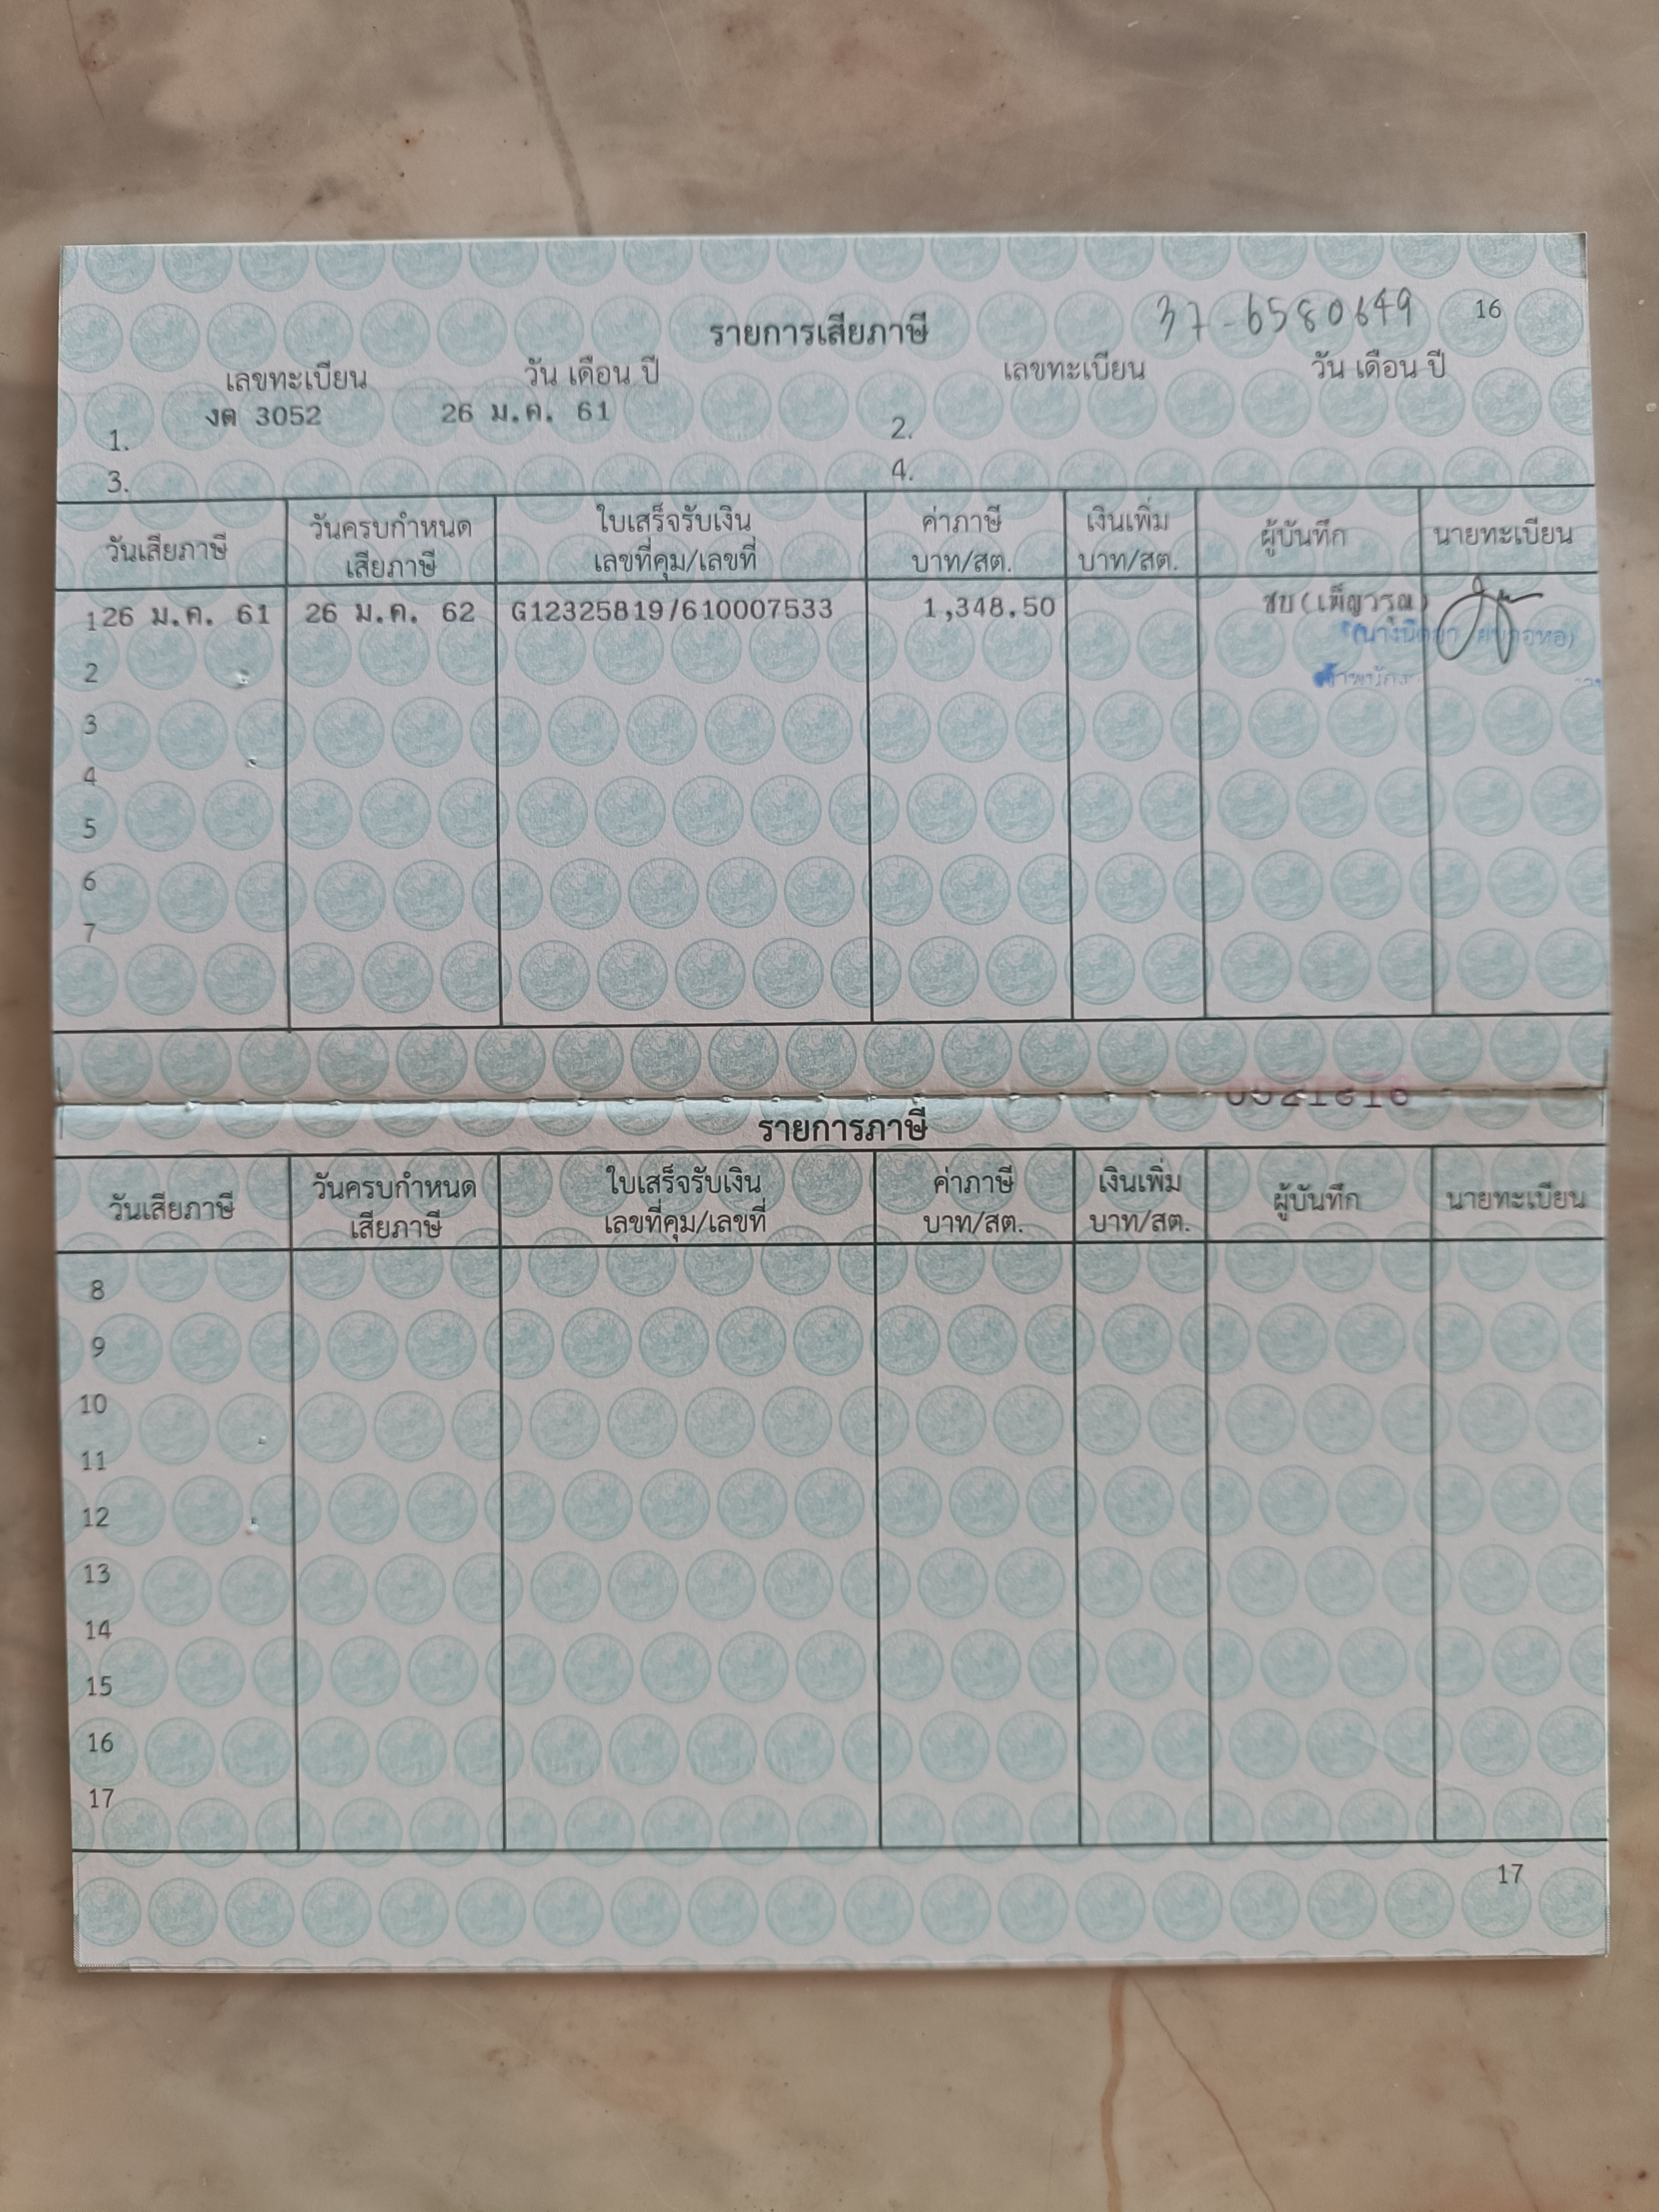 37-6580649 16
รายการเสียภาษี
เลขทะเบียน วัน เดือน ปี เลขทะเบียน วัน เดือน ปี
1. งต 3052 26 ม.ค. 61 2.
3. 4.
วันเสียภาษี วันครบกำหนดเสียภาษี ใบเสร็จรับเงิน เลขที่คุม/เลขที่ ค่าภาษี บาท/สต. เงินเพิ่ม บาท/สต. ผู้บันทึก นายทะเบียน
1 26 ม.ค. 61 26 ม.ค. 62 G12325819/610007533 1,348.50 ชบ(เพ็ญวรุณ)
2
3
4
5
6
7
รายการภาษี
วันเสียภาษี วันครบกำหนดเสียภาษี ใบเสร็จรับเงิน เลขที่คุม/เลขที่ ค่าภาษี บาท/สต. เงินเพิ่ม บาท/สต. ผู้บันทึก นายทะเบียน
8
9
10
11
12
13
14
15
16
17
17